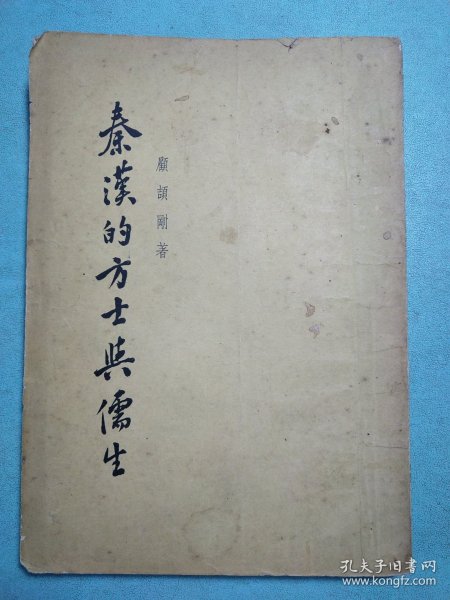 秦漢的方士與儒生
顧頡剛著
孔夫子旧书网
www.kongfz.com